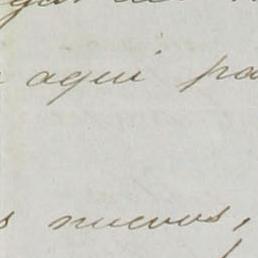 aqui pa
s nuevos,